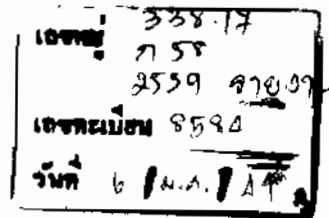 เลขหมู่ 338.17
ก 58
2539 รายงาน
เลขทะเบียน 8584
วันที่ 6 / ม.ค. / 44